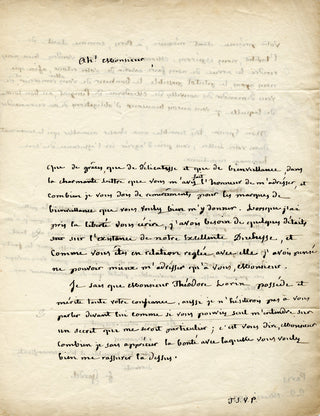 Ah! Monsieur
Que de grâces, que de délicatesse et que de bienveillance dans
la charmante lettre que vous m'avez fait l'honneur de m'adresser, et
combien je vous dois de remerciments, pour les marques de
bienveillance que vous voulez bien m'y donner. Lorsque j'ai
pris la liberté vous écrire, j'avois besoin de quelques détails
sur l'existence de notre Excellente Duchesse, et
comme vous êtes en relation reglée avec elle j'avois pensé
ne pouvoir mieux m'adresser qu'à vous, Monsieur.
Je sais que Monsieur Théodore Lorin possède et
mérite toute votre confiance, aussi je n'hésiterai pas à vous
parler devant lui comme si vous pouviez seul m'entendre sur
un secret qui me seroit particulier; c'est vous dire, Monsieur
combien je sais apprécier la bonté avec laquelle vous voulez
bien me rassurer là dessus.
T.S.V.P.